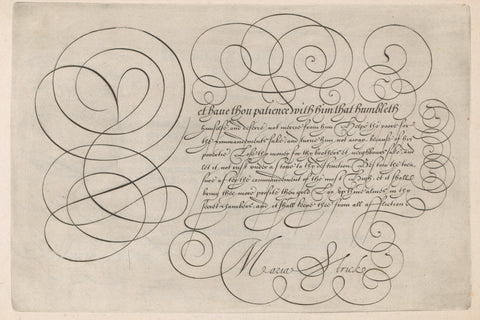 et have thou patience with him that humbleth
himselfe, and deferre not mercie from him. Helpe the poore for
the commandements sake, and turne him not away, because of his
povertie. Lose thy money for thy brothers et neighbours sake, and
let it not rust under a stone to thy destruction. Bestow thy trea-
sure after the commandement of the most High, et it shall
bring thee more profite then gold. Lay up thine almes in thy
secret chambers, and it shall keepe thee from all affliction.
Maria Strick